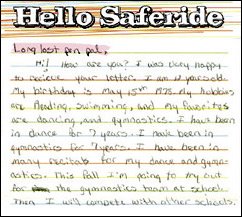 Hello Saferide
Long lost pen pal,
Hi! How are you? I was very happy
to recieve your letter. I am 12 years old.
My birthday is May 15th 1978. my hobbies
are Reading, swimming, and my favorites
are dancing, and gymnastics. I have been
in dance for 7 years. I have been in
gymnastics for 7 years. I have been in
many recitals for my dance and gymn-
astics. This fall I'm going to try out
for the gymnastics team at school.
Then I will compete with other schools.